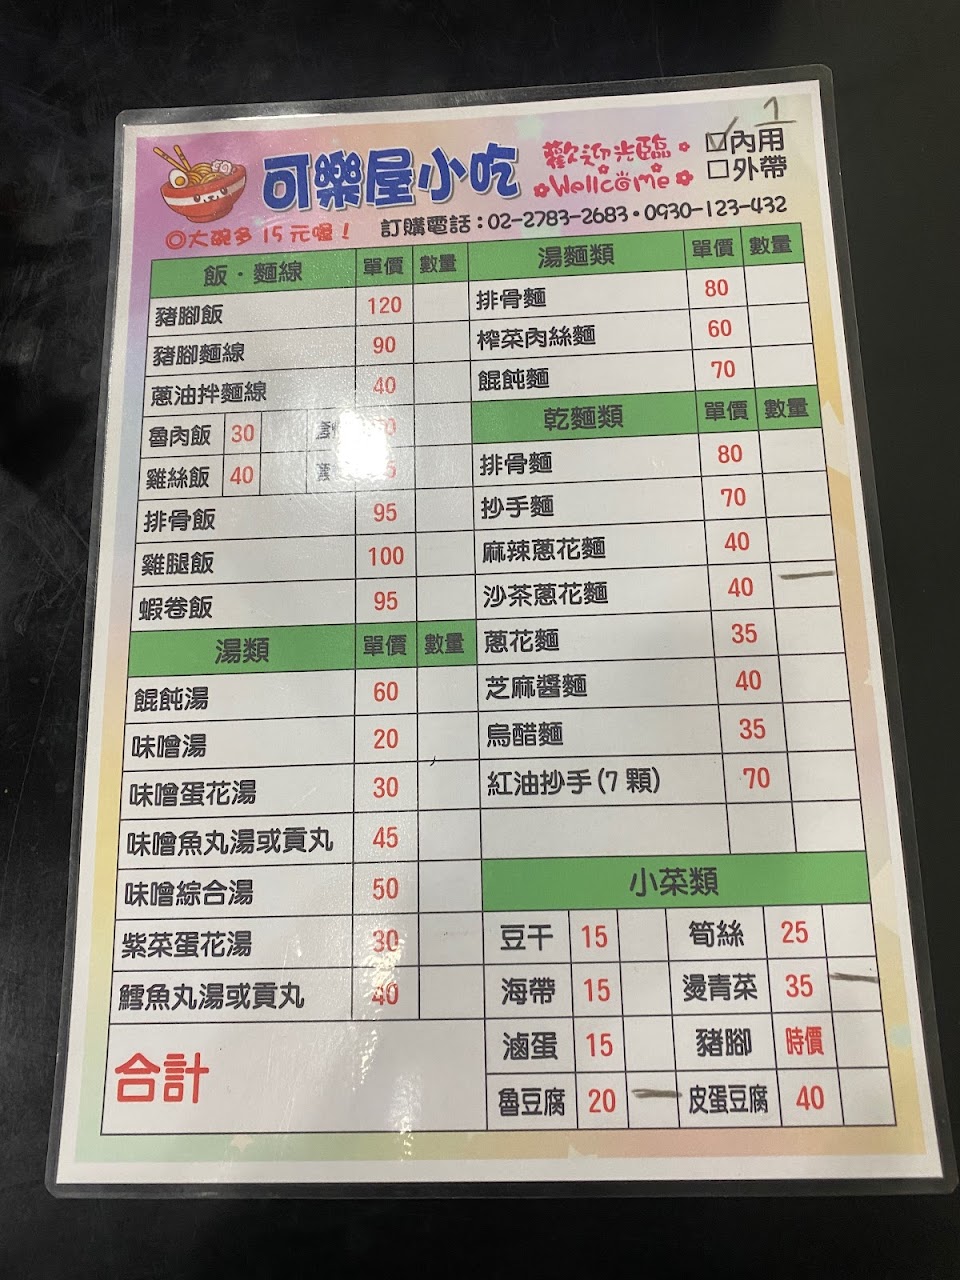 1
可樂屋小吃
歡迎光臨
Wellcome
☑內用
□外帶
◎大碗多15元喔！
訂購電話：02-2783-2683•0930-123-432
飯．麵線 單價 數量
豬腳飯 120
豬腳麵線 90
蔥油拌麵線 40
魯肉飯 30
雞絲飯 40
排骨飯 95
雞腿飯 100
蝦卷飯 95
湯類 單價 數量
餛飩湯 60
味噌湯 20
味噌蛋花湯 30
味噌魚丸湯或貢丸 45
味噌綜合湯 50
紫菜蛋花湯 30
鱈魚丸湯或貢丸 40
合計
湯麵類 單價 數量
排骨麵 80
榨菜肉絲麵 60
餛飩麵 70
乾麵類 單價 數量
排骨麵 80
抄手麵 70
麻辣蔥花麵 40
沙茶蔥花麵 40
蔥花麵 35
芝麻醬麵 40
烏醋麵 35
紅油抄手(7顆) 70
小菜類
豆干 15 筍絲 25
海帶 15 燙青菜 35
滷蛋 15 豬腳 時價
魯豆腐 20 皮蛋豆腐 40